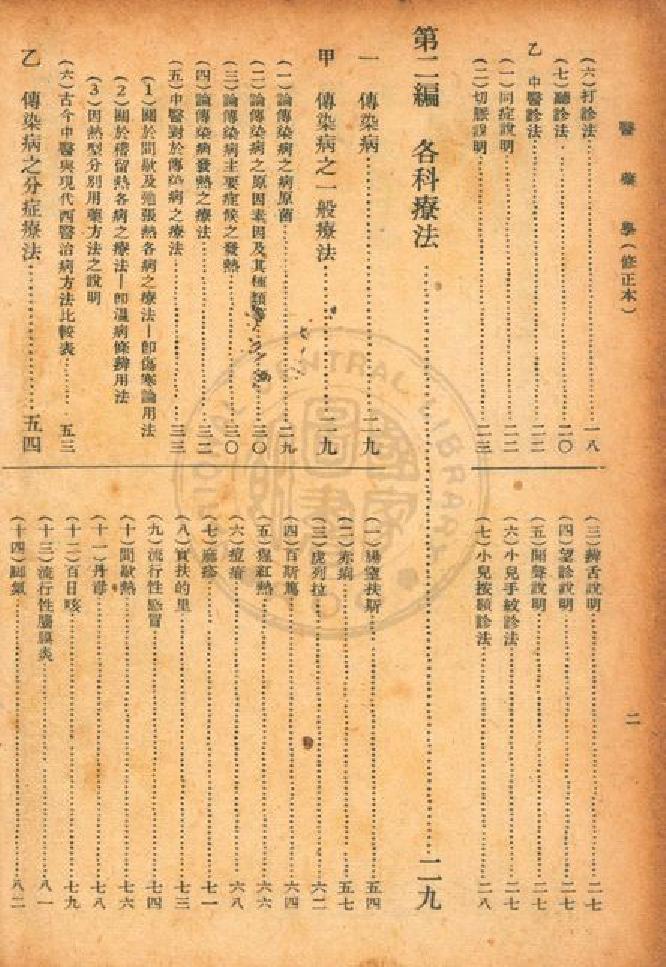 醫療學(修正本)
二
(六)打診法……一八
(七)聽診法……二〇
乙 中醫診法……二二
(一)問症說明……二二
(二)切脈說明……二三
(三)辨舌說明……二七
(四)望診說明……二七
(五)聞聲說明……二七
(六)小兒手紋診法……二七
(七)小兒按額診法……二八
第二編 各科療法……二九
一 傳染病……二九
甲 傳染病之一般療法……二九
(一)論傳染病之病原菌……二九
(二)論傳染病之原因素因及其種類等……三〇
(三)論傳染病主要症候之發熱……三〇
(四)論傳染病發熱之療法……三二
(五)中醫對於傳染病之療法……三三
(1)關於間歇及弛張熱各病之療法—即傷寒論用法
(2)關於稽留熱各病之療法—即溫病條辨用法
(3)因熱型分別用藥方法之說明
(六)古今中醫與現代西醫治病方法比較表……五三
乙 傳染病之分症療法……五四
(一)腸窒扶斯……五四
(二)赤痢……五七
(三)虎列拉……六二
(四)百斯篤……六四
(五)猩紅熱……六六
(六)痘瘡……六八
(七)麻疹……七一
(八)實扶的里……七三
(九)流行性感冒……七四
(十)間歇熱……七六
(十一)丹毒……七八
(十二)百日咳……七九
(十三)流行性腦膜炎……八一
(十四)腳氣……八二